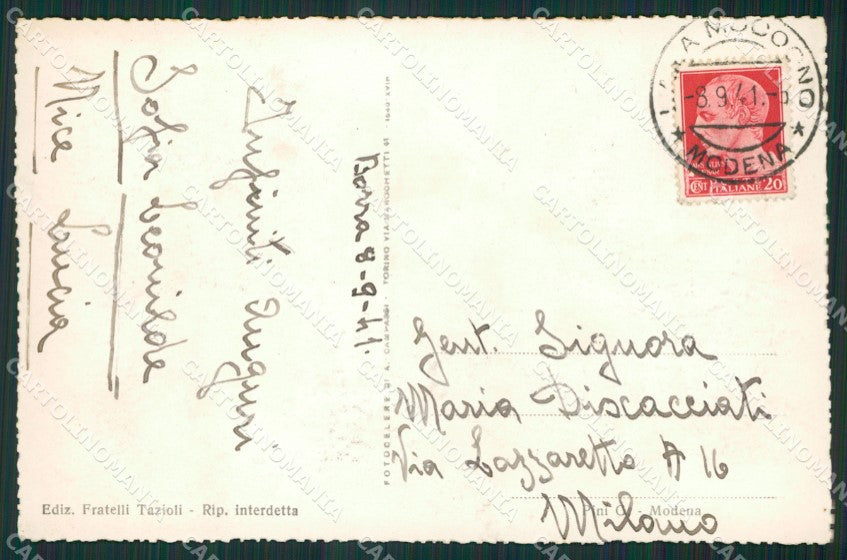 LAMA MOCOGNO
-8.9.41.-
★ MODENA ★
CENT ITALIANE 20
Gent. Signora
Maria Discacciati
Via Lazzaretto A 16
Milano
8-9-41.
Infiniti Auguri
Sofia Leonilde
Nice Lucia
FOTOCELERE DI A. CAMPASSI - TORINO VIA MAROCHETTI 41 1940-XVIII
Ediz. Fratelli Tazioli - Rip. interdetta
Pini G. - Modena
CARTOLINOMANIA